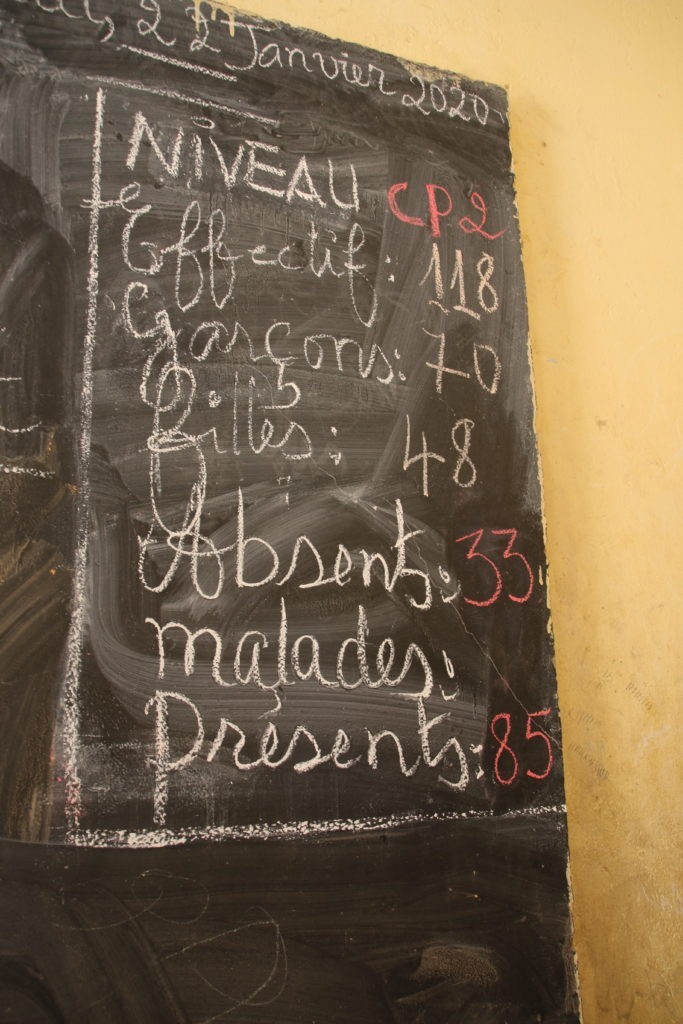 22 Janvier 2020
NIVEAU CP2
Effectif: 118
Garçons: 70
Filles: 48
Absents: 33
malades:
Présents: 85